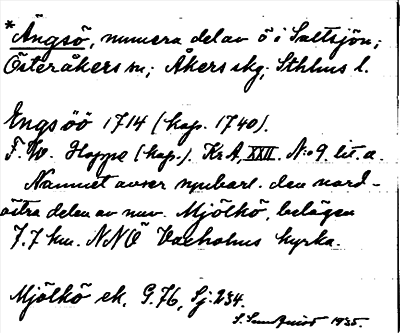 *Ängsö, numera del av ö i Saltsjön;
Österåkers sn; Åkers skg; Sthlms l.
Engs öö 1714 (kop. 1740).
F. W. Hoppe (kop.). Kr A, XXII. N:o 9. lit. a.
Namnet avser uppbarl. den nord-
östra delen av nuv. Mjölkö, belägen
7.7 km. NNÖ Vaxholms kyrka.
Mjölkö ek. G. 76, Sj: 234.
1935.